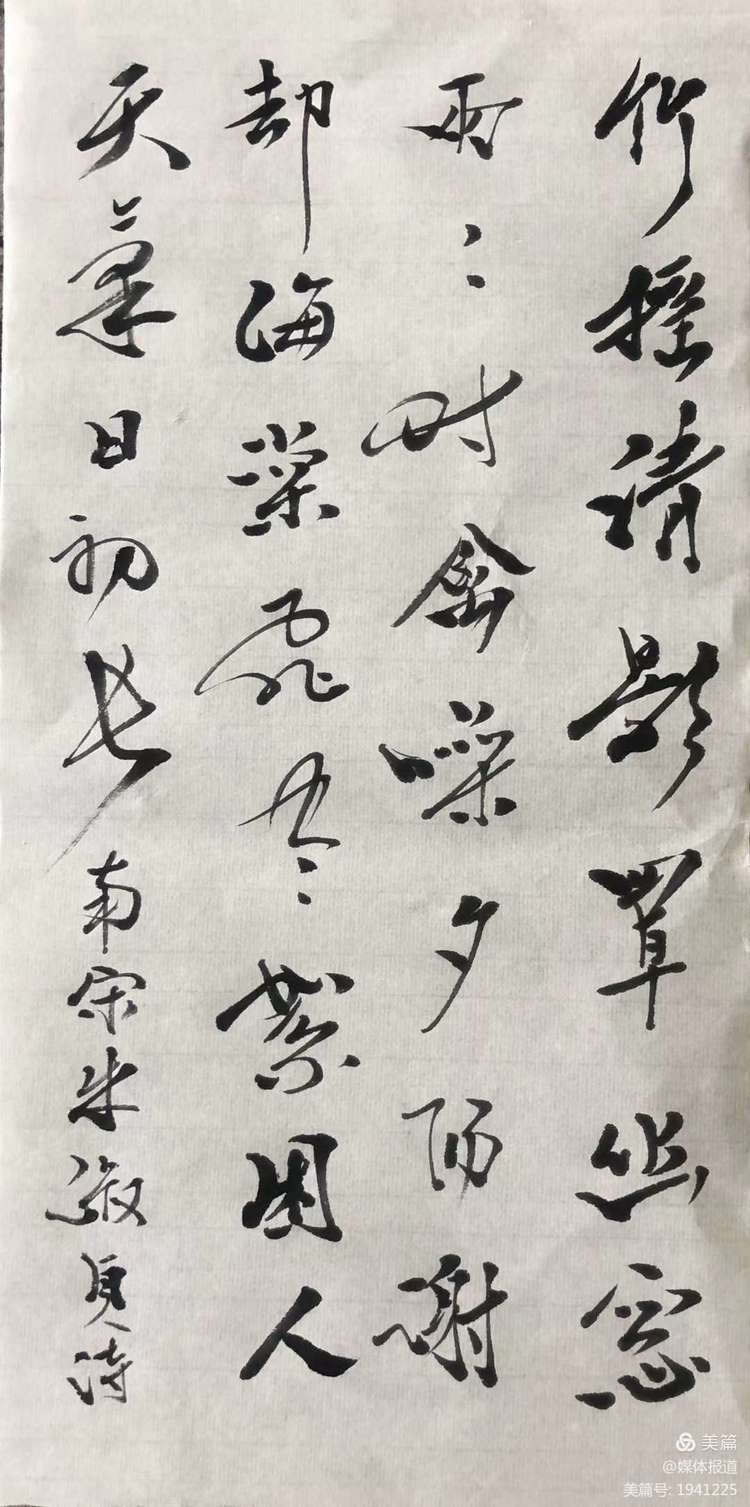 竹摇清影罩幽窓
两々时禽噪夕阳谢
却海棠飛尽絮困人
天氣日初長 南宋朱淑貞诗
美篇
@媒体报道
美篇号: 1941225